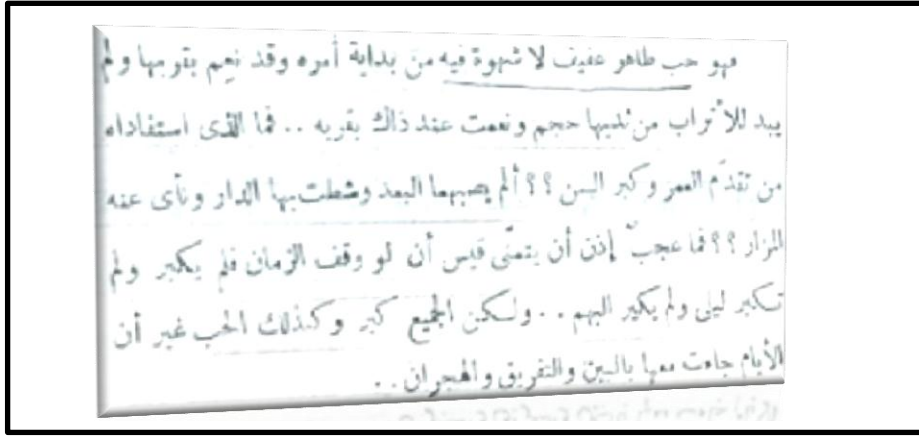 فهو حب طاهر عفيف لا شهوة فيه من بداية أمره وقد نعم بقربها ولم
يبد للأتراب من ثديها حجم ونعمت عند ذاك بقربه .. فما الذى استفاداه
من تقدم العمر وكبر السن ؟؟ ألم يصبهما البعد وشطت بها الدار ونأى عنه
المزار ؟؟ فما عجبٌ إذن أن يتمنى قيس أن لو وقف الزمان فلم يكبر ولم
تكبر ليلى ولم يكبر البهم .. ولكن الجميع كبر وكذلك الحب غير أن
الأيام جاءت معها بالبين والتفريق والهجران ..